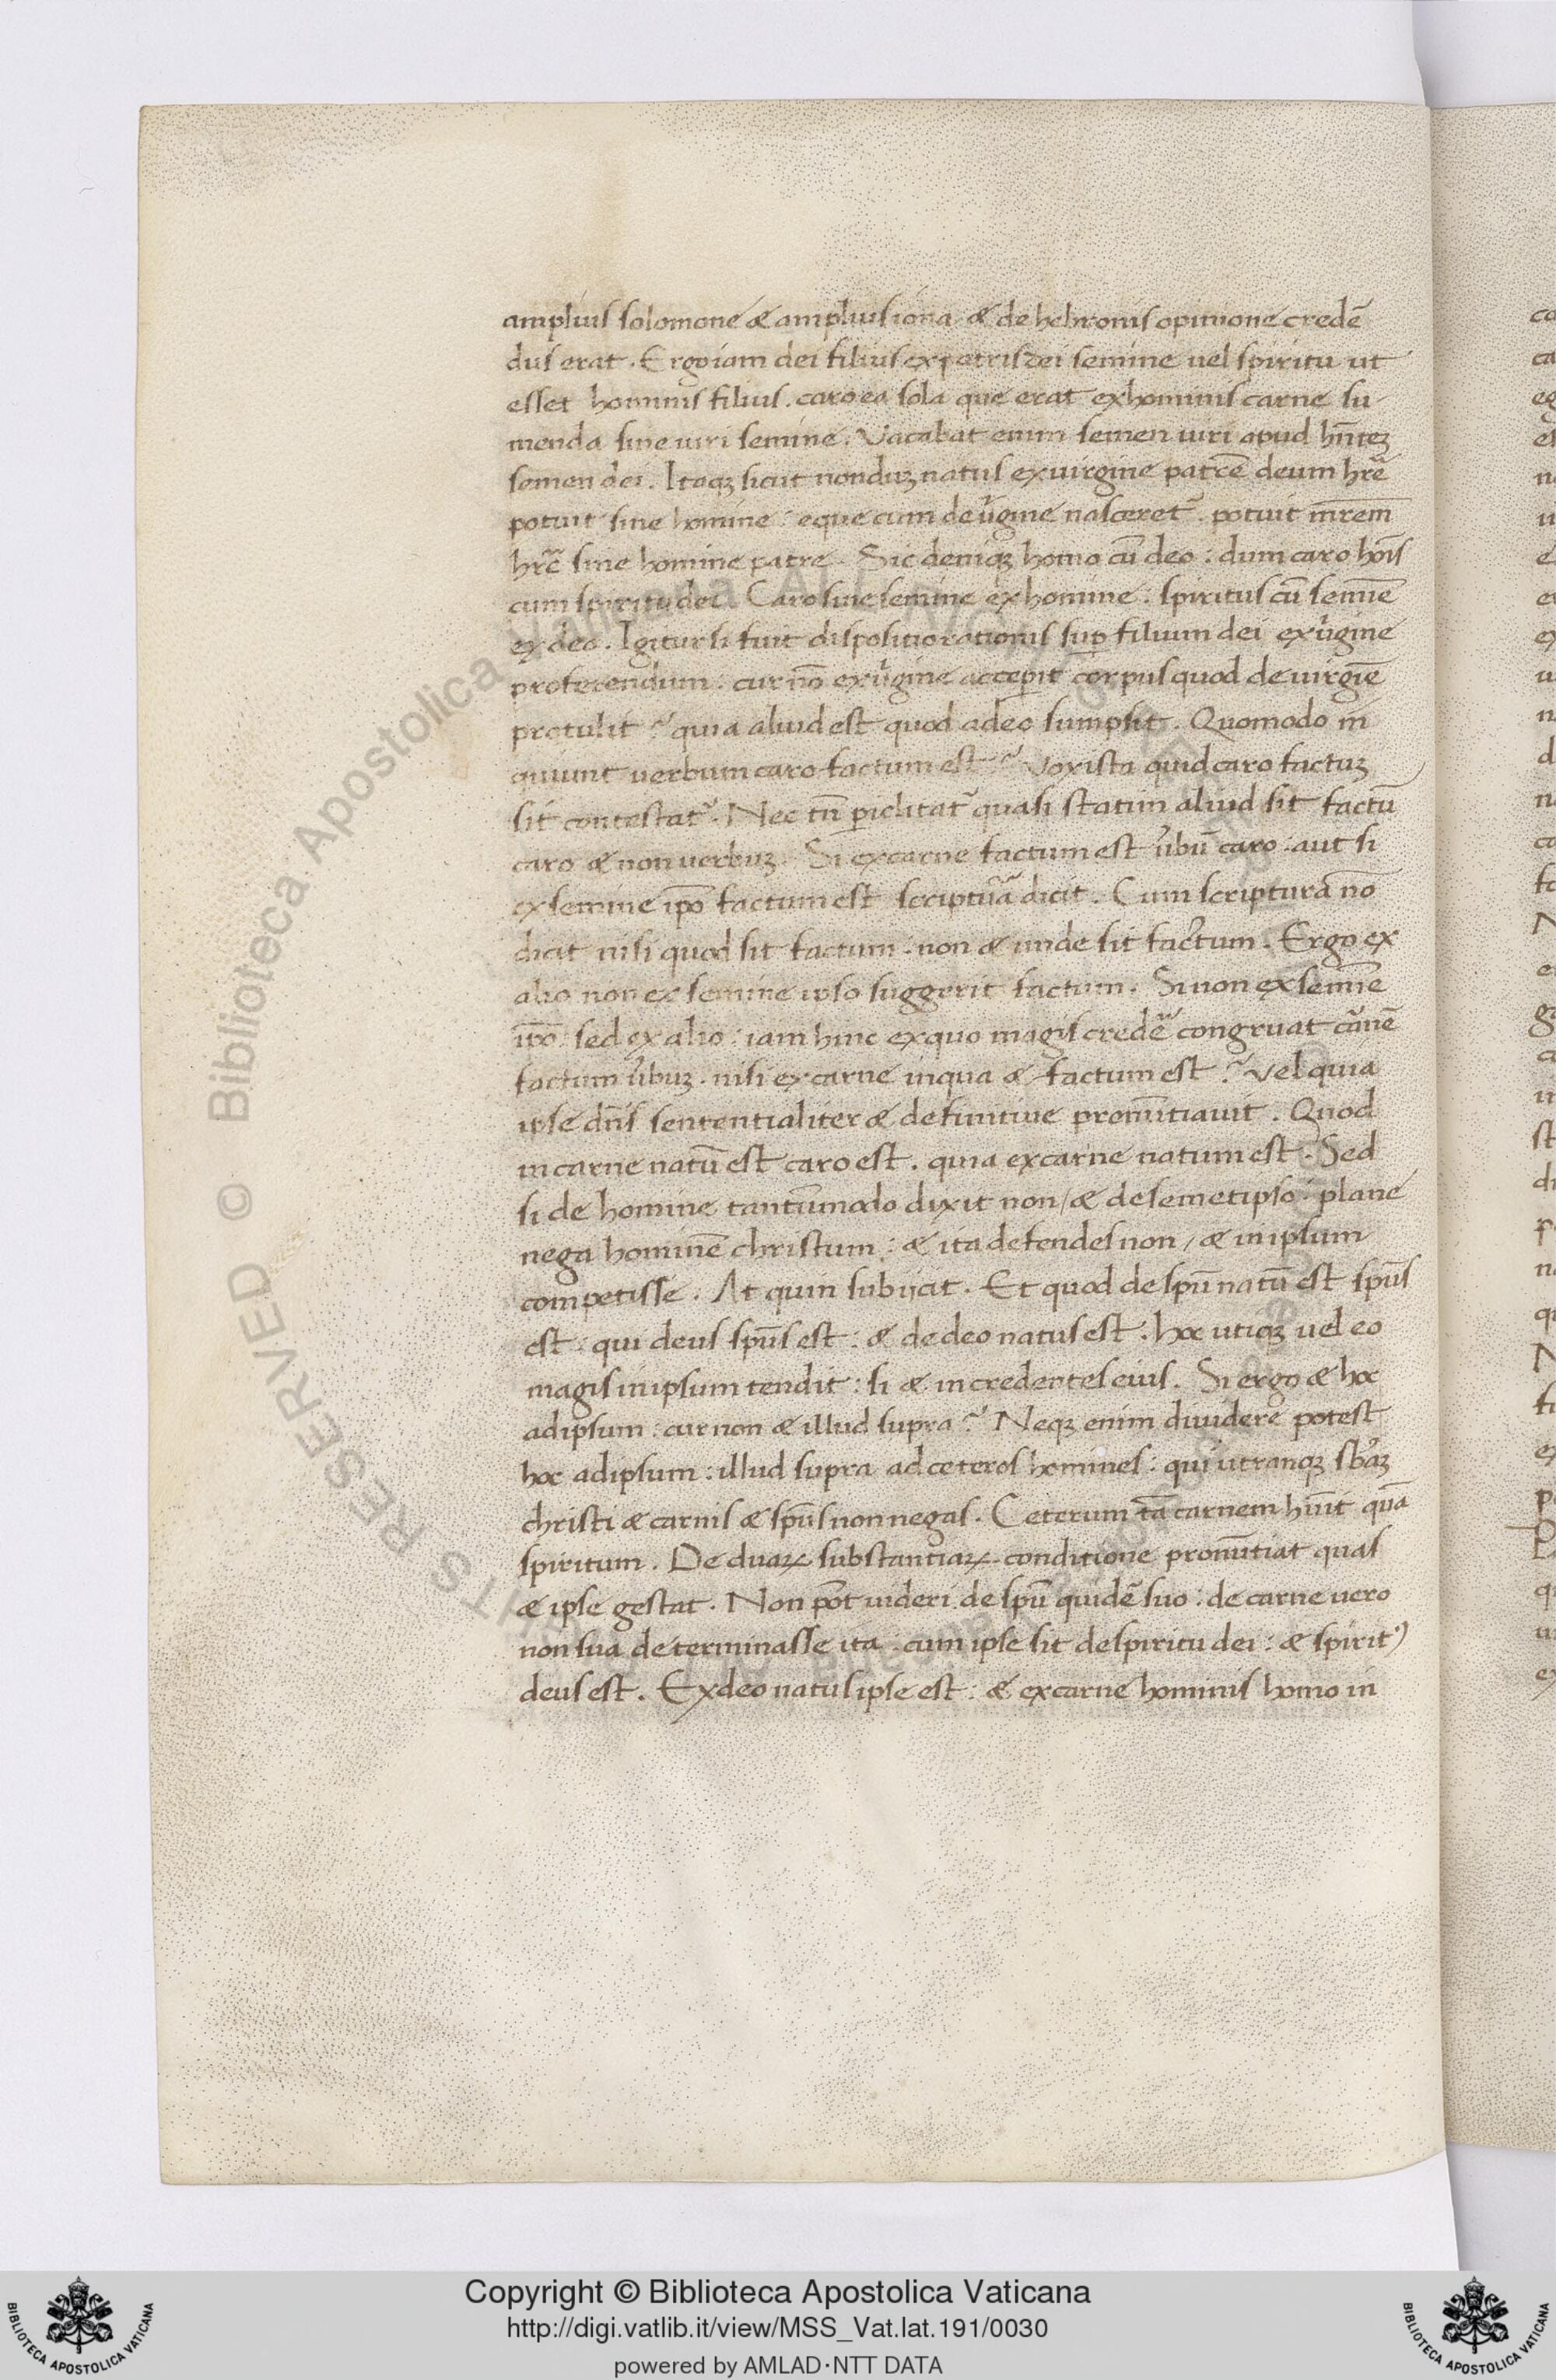 amplius solomone & amplius iona & de hebionis opinione credē
dus erat. Ergo iam dei filius ex patris dei semine vel spiritu ut
esset hominis filius. caro ea sola que erat ex hominis carne su
menda sine viri semine. Vacabat enim semen viri apud hn̄teꝫ
semen dei. Itaqꝫ sicut nonduꝫ natus ex virgine patrē deum hr̄e
potuit sine homine: eque cum de v̓gine nasceret᷑. potuit mr̄em
hr̄e sine homine patre. Sic deniqꝫ homo cū deo: dum caro hoīs
cum spiritu dei. Caro sine semine ex homine: spiritus cū semīe
ex deo. Igitur si fuit dispositio rationis suꝑ filium dei ex v̓gine
proferendum: cur nō ex v̓gine acceperit corpus quod de virgīe
protulit? quia aliud est quod a deo sumpsit. Quomodo in
quiunt verbum caro factum est? Vox ista quid caro factuꝫ
sit contestat᷑. Nec tn̄ ꝑiclitat᷑ quasi statim aliud sit factū
caro & non verbuꝫ. Si ex carne factum est v̓bū caro: aut si
ex semine ip̄o factum est scriptura dicit. Cum scriptura nō
dicit nisi quod sit factum: non & unde sit factum. Ergo ex
alio non ex semine ipso suggerit factum. Si non ex semīe
ip̄o sed ex alio: iam hinc ex quo magis credere congruat carnē
factum v̓buꝫ. nisi ex carne in qua & factum est? vel quia
ipse dn̄s sententialiter & definitive pronūtiavit. Quod
in carne natū est caro est. quia ex carne natum est. Sed
si de homine tantūmodo dixit non / & de semetipso: plane
nega hominē christum: & ita defendes non / & in ipsum
competisse. At quin subijcit. Et quod de spū natū est spūs
est: qui deus spūs est: & de deo natus est. hoc utiqꝫ vel eo
magis in ipsum tendit: si & in credentes eius. Si ergo & hoc
ad ipsum: cur non & illud supra? Neqꝫ enim dividere potest
hoc ad ipsum: illud supra ad ceteros homines: qui utranqꝫ sb̄aꝫ
christi & carnis & spūs non negas. Ceterum tā carnem hūit quā
spiritum. De duaꝝ substantiaꝝ conditione pronūtiat quas
& ipse gestat. Non pōt videri de spū quidē suo: de carne vero
non sua determinasse ita: cum ipse sit de spiritu dei: & spiritꝰ
deus est. Ex deo natus ipse est: & ex carne hominis homo in
Copyright © Biblioteca Apostolica Vaticana
http://digi.vatlib.it/view/MSS_Vat.lat.191/0030
powered by AMLAD·NTT DATA
BIBLIOTECA APOSTOLICA VATICANA
BIBLIOTECA APOSTOLICA VATICANA